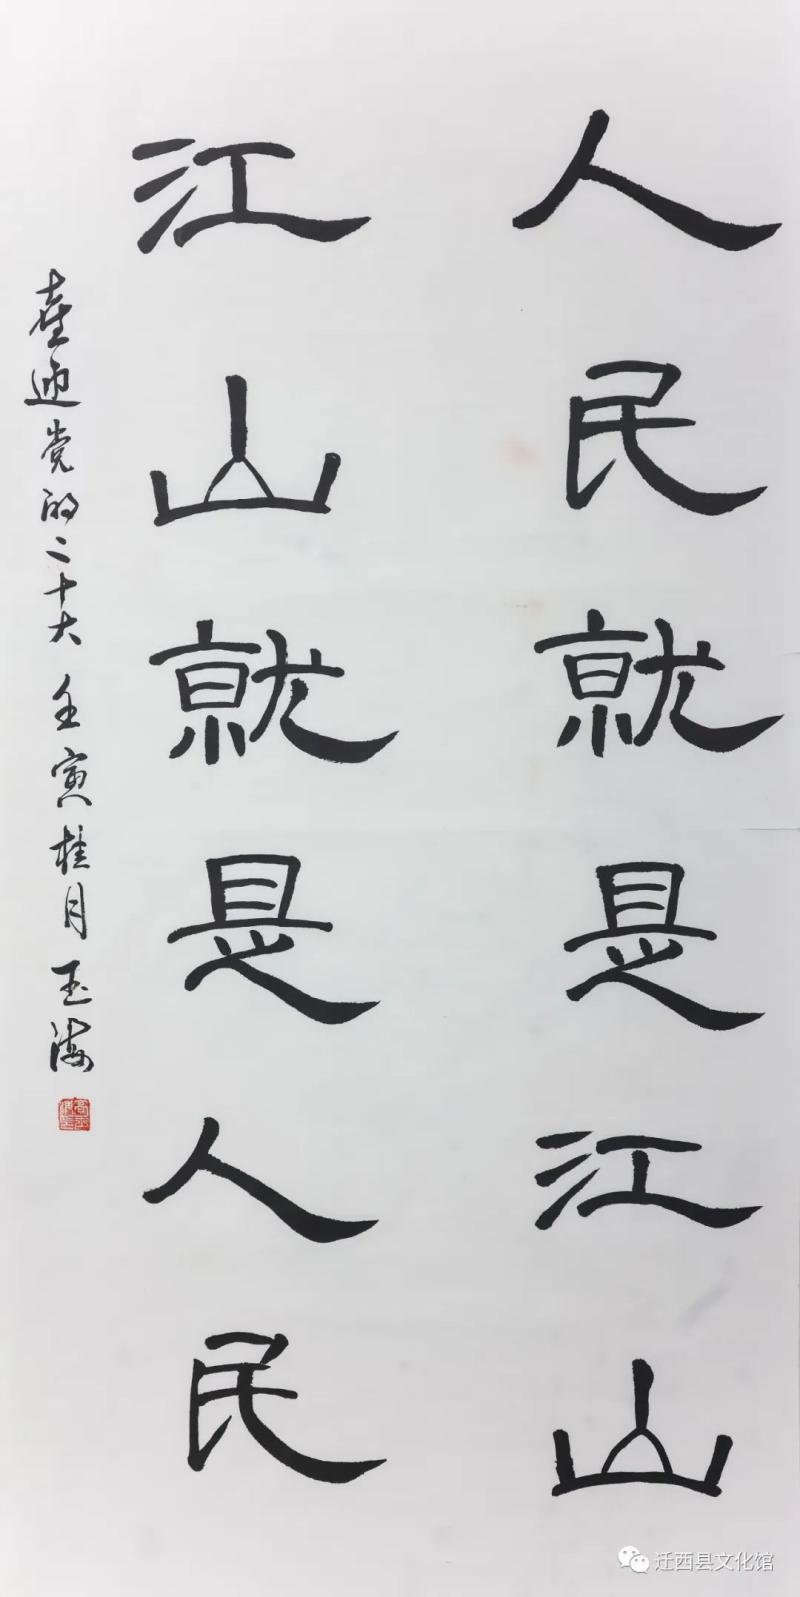 人民就是江山
江山就是人民
喜迎党的二十大 壬寅桂月 玉海
迁西县文化馆